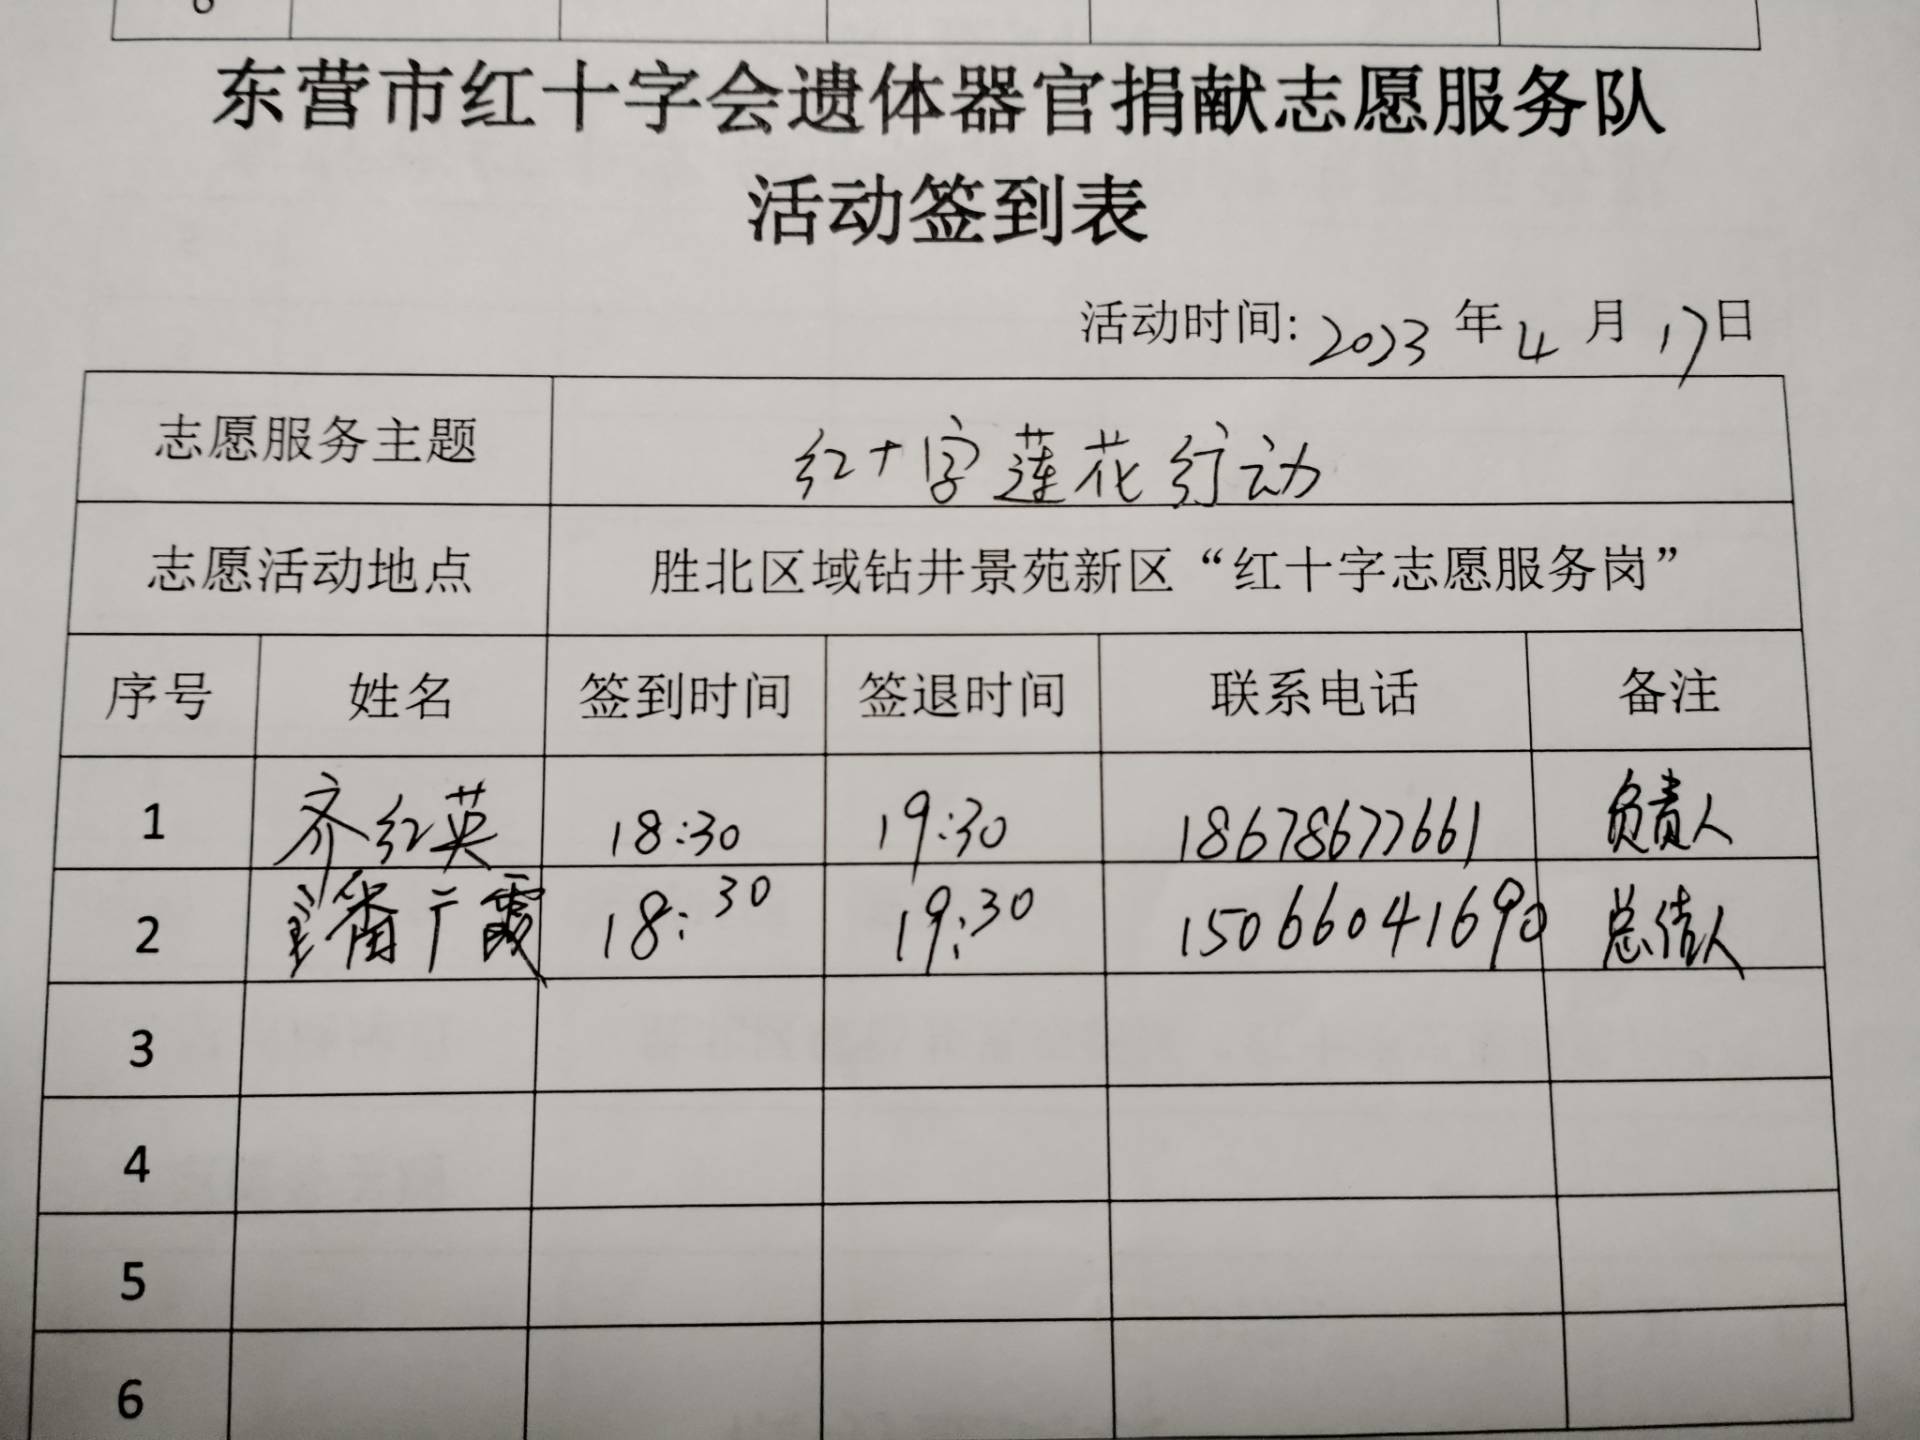 东营市红十字会遗体器官捐献志愿服务队
活动签到表
活动时间: 2023 年 4 月 17 日
志愿服务主题 红十字莲花行动
志愿活动地点 胜北区域钻井景苑新区“红十字志愿服务岗”
序号 姓名 签到时间 签退时间 联系电话 备注
1 齐红英 18:30 19:30 18678677661 负责人
2 广霞 18:30 19:30 15066041690 总结人
3
4
5
6